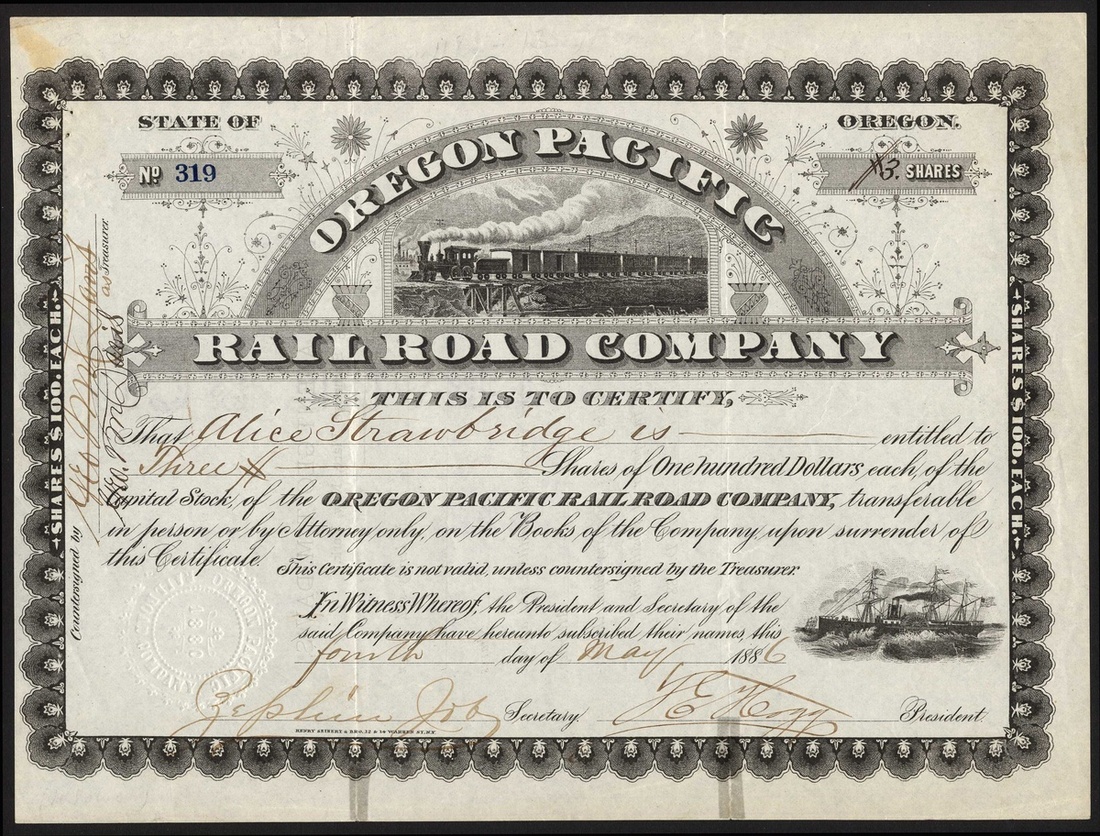 STATE OF
OREGON.
No 319
3. SHARES
OREGON PACIFIC
RAIL ROAD COMPANY
THIS IS TO CERTIFY,
That Alice Strawbridge is entitled to
Three Shares of One hundred Dollars each, of the
Capital Stock, of the OREGON PACIFIC RAIL ROAD COMPANY, transferable
in person or by Attorney only, on the Books of the Company upon surrender of
this Certificate.
This Certificate is not valid, unless countersigned by the Treasurer.
In Witness Whereof, the President and Secretary of the
said Company have hereunto subscribed their names, this
fourth day of May 1886
Zephin Job Secretary. T E Hogg President.
HENRY SEIBERT & BRO. 12 & 14 WARREN ST. N.Y.
SHARES $100. EACH.
SHARES $100. EACH.
Countersigned by
Geo. Wm Davis
as Treasurer
OREGON PACIFIC
COMPANY
1880